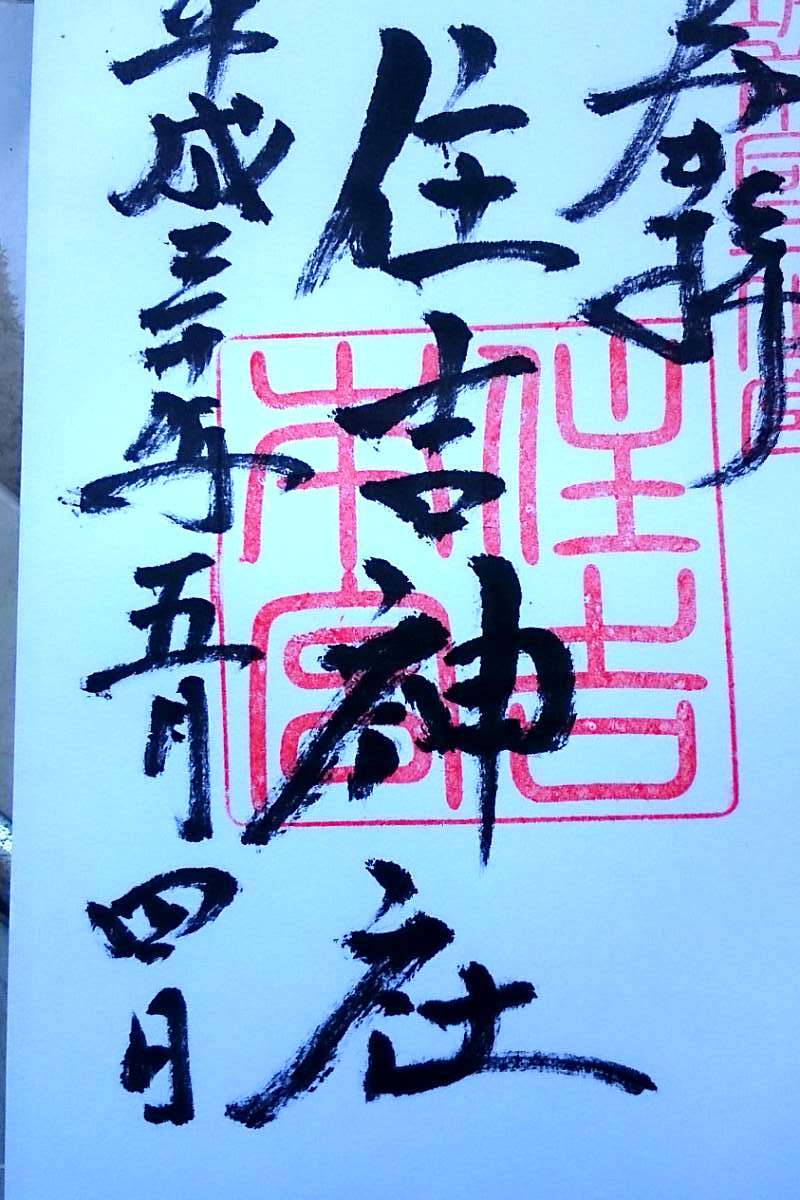 奉拝
住吉神社
住吉本宮
平成三十年五月四日